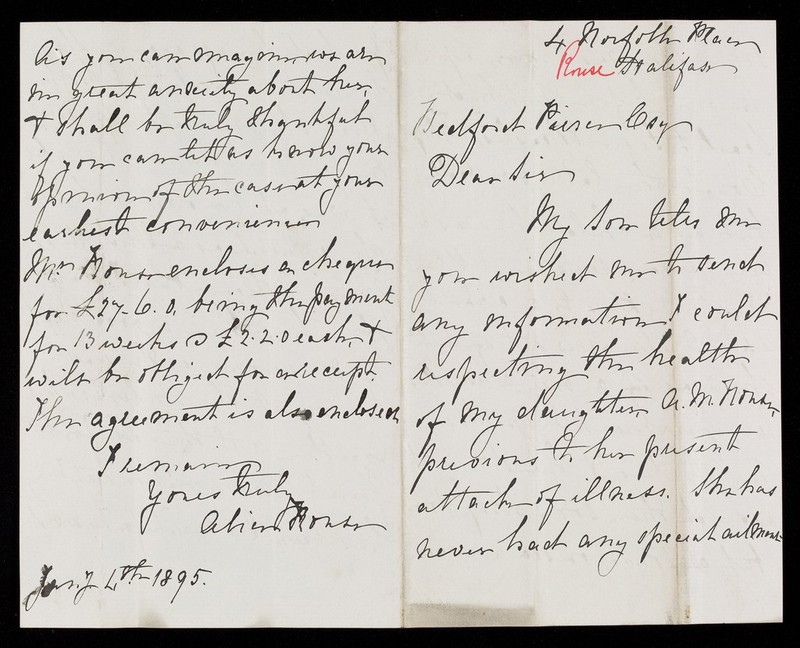 4 Norfolk Place
Rouse Halifax
Bedford Pierce Esq
Dear Sir
My Son tells me
you wished me to send
any information I could
respecting the health
of my daughter A. M. Rouse,
previous to her present
attack of illness. She has
never had any special ailment
As you can imagine we are
in great anxiety about her,
& shall be truly thankful
if you can let us know your
opinion of the case at your
earliest convenience
Mr Rouse encloses a cheque
for £27. 6. 0. being the payment
for 13 weeks @ £2. 2. 0 each, &
will be obliged for a receipt.
The agreement is also enclosed
I remain
Yours truly
Alice Rouse
Jany 4th 1895.